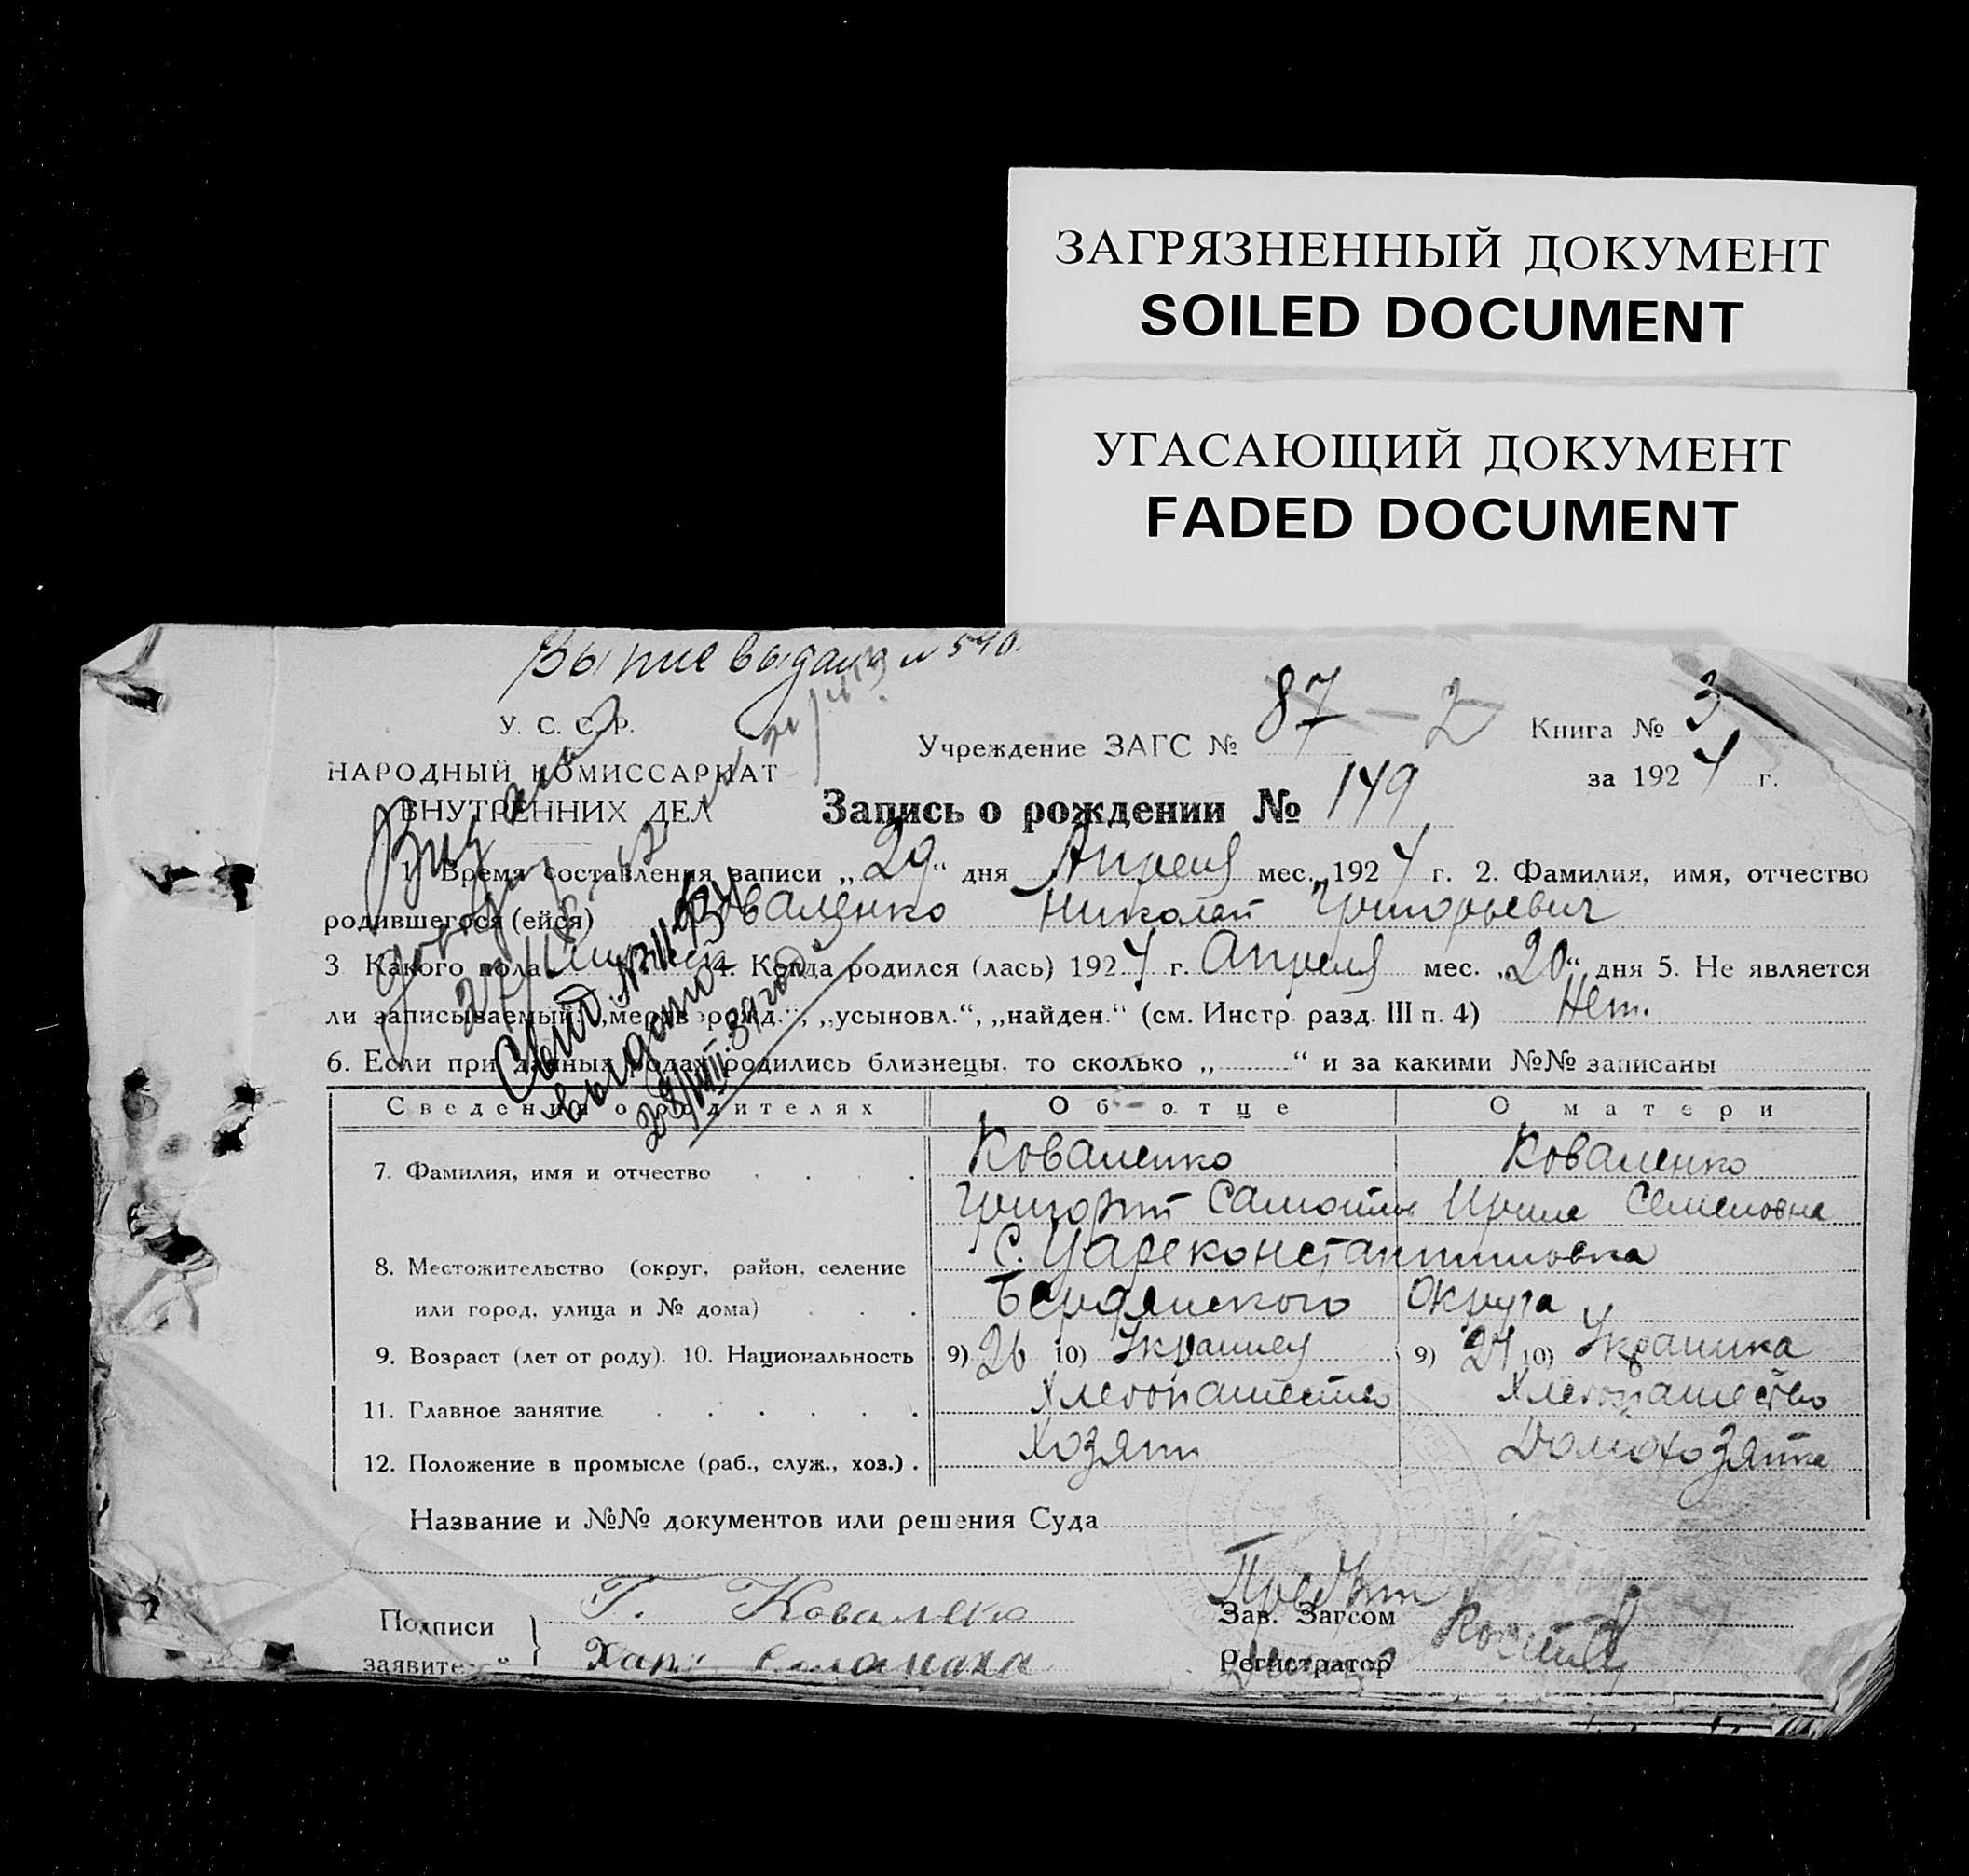 ЗАГРЯЗНЕННЫЙ ДОКУМЕНТ
SOILED DOCUMENT
УГАСАЮЩИЙ ДОКУМЕНТ
FADED DOCUMENT
выдана № 540.
У. С. С. Р.
НАРОДНЫЙ КОМИССАРИАТ
ВНУТРЕННИХ ДЕЛ
Учреждение ЗАГС № 87 — 2
Книга № 3
за 1924 г.
Запись о рождении № 149
1 Время составления записи „29“ дня Апреля мес. 1924 г. 2. Фамилия, имя, отчество
родившегося (ейся) Коваленко Николай Григорьевич
3 Какого пола 4. Когда родился (лась) 1924 г. Апреля мес. „20“ дня 5. Не является
ли записываемый: „мертв рожд.“, „усыновл.“, „найден.“ (см. Инстр. разд. III п. 4) Нет.
6. Если при данных родах родились близнецы, то сколько „ “ и за какими №№ записаны
выдано
Сведения о родителях Об отце О матери
7. Фамилия, имя и отчество Коваленко Коваленко
Григорий Ирина Семеновна
8. Местожительство (округ, район, селение С. Цареконстантиновка
или город, улица и № дома) Бердянского Округа
9. Возраст (лет от роду). 10. Национальность 9) 26 10) Украинец 9) 24 10) Украинка
11. Главное занятие Хлебопашество Хлебопашество
12. Положение в промысле (раб., служ., хоз.) Хозяин Домохозяйка
Название и №№ документов или решения Суда
Подписи Г. Ковалеко
Зав. Загсом
заявите
Регистратор